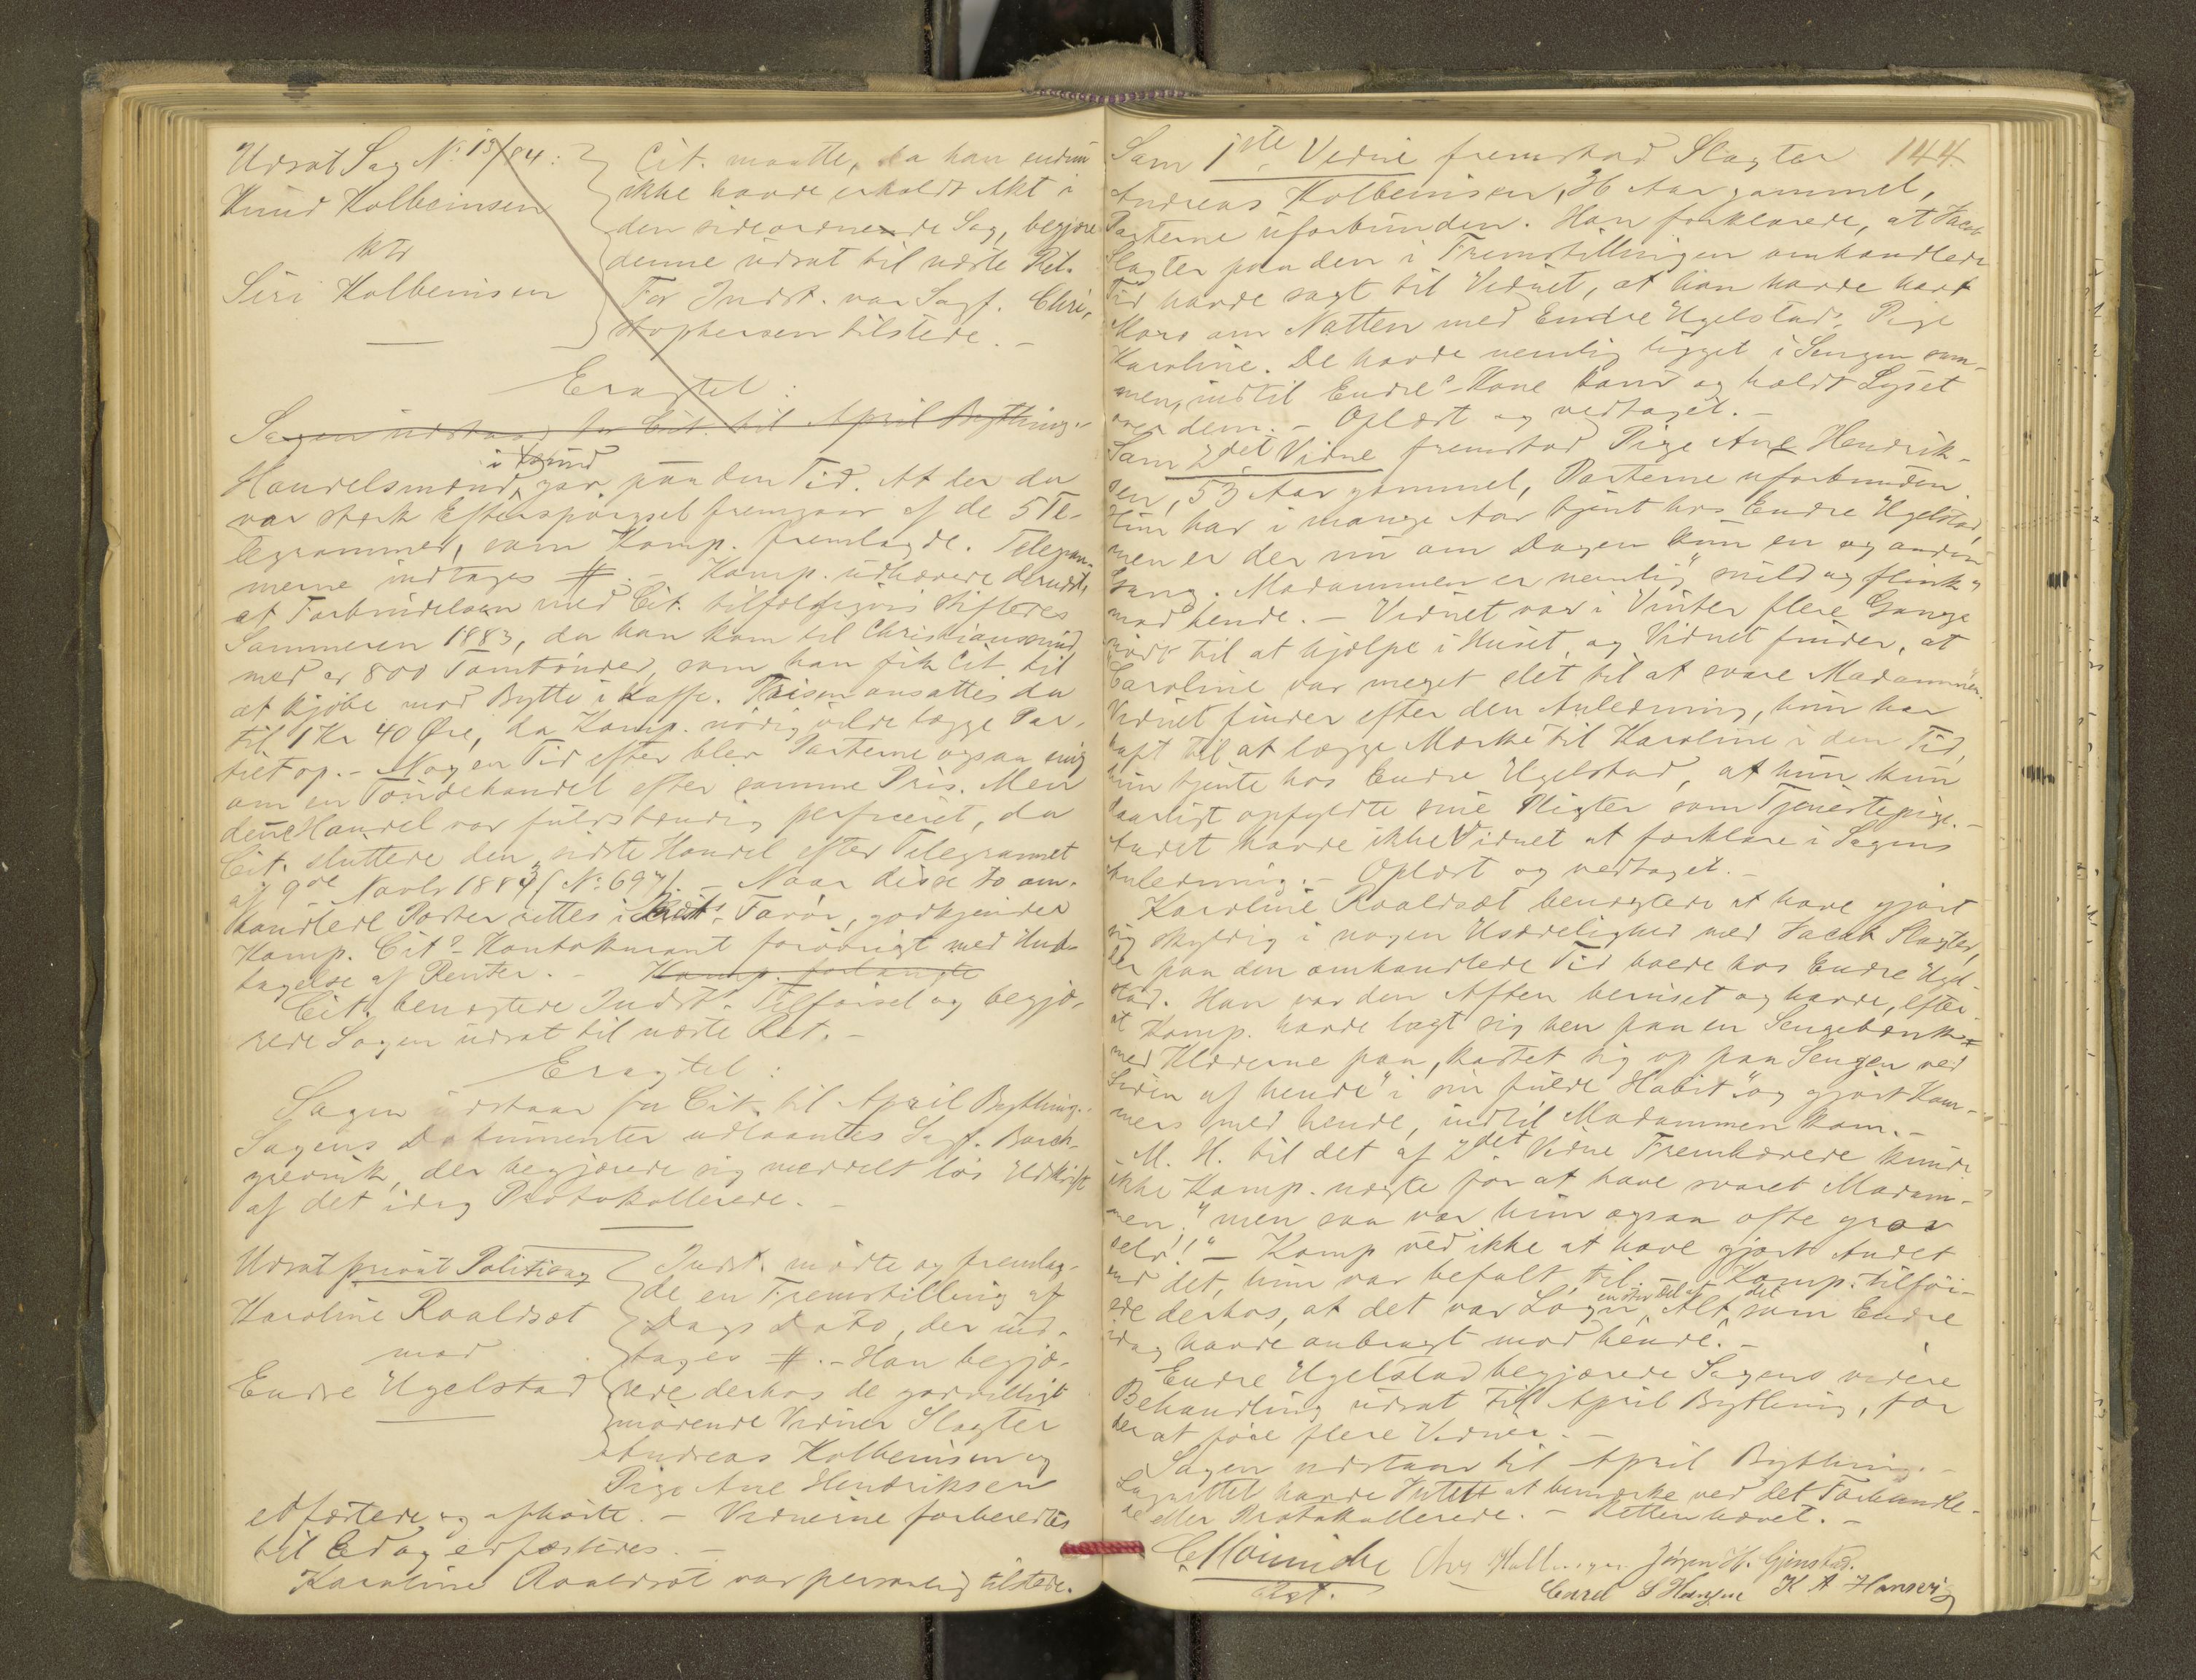 Udsat Sag No 13/84:
Knud Kolbeinsen
ktr
Siri Kolbeinsen
Cit. maatte, da han endnu
ikke havde erholdt Akt i
den sideordnede Sag, begjære
denne udsat til næste Ret.
For Indst. var Sagf. Chri-
stophersen tilstede. -
Eragtet:
Sagen udstaar for Cit. til April Bythings.
Handelsmænd i Xsund gav paa den Tid. At der da
var stærk Efterspørgsel fremgaar af de 5 Te-
legrammer, som Komp. fremlagde. Telegram-
merne indtages #. - Komp. udhævede derudst,
at Forbindelsen med Cit. tilfældigvis stiftedes
Sommeren 1883, da han kom til Christianssund
med ca 800 Tomtønder, som han fik Cit. til
at kjøbe mod Bytte i Kaffe. Prisen ansattes da
til 1 Kr 40 Øre, da Komp. nødig vilde lægge Par-
tiet op. - Nogen Tid efter blev Parterne ogsaa enig
om en Tøndehandel efter samme Pris. Men
denne Handel var fuldstændig perficeret, da
Cit. sluttede den sidste Handel efter Telegrammet
af 9de Novbr 1883 (No 697). - Naar disse to om-
handlede Poster rettes i Indst.s Favør, godkjender
Komp. Cit.s Kontokurant forøvrigt med Und-
tagelse af Renter. - Komp. forlangte
Cit. benægtede Indst.s Tilførsel og begjæ-
rede Sagen udsat til næste Ret. -
Eragtet:
Sagen udstaar for Cit. til April Bything. -
Sagens Dokumenter udlaantes Sagf. Borch-
grevink, der begjærede sig meddelt løs Udskrift
af det idag Protokollerede. -
Udsat privat Politisag
Karoline Roaldsøt
mod
Endre Ugelstad
Indst. mødte og fremlag-
de en Fremstilling af
Dags Dato, der ind-
tages #. - Han begjæ-
rede derhos de godvilligt
mødende Vidner Slagter
Andreas Kolbeinsen og
Pige Ane Hendriksen
edfæstede og afhørte. - Vidnerne forberedtes
til Ed og edfæstedes. -
Karoline Roaldsøt var personlig tilstede.
144.
Som 1ste Vidne fremstod Slagter
Andreas Kolbeinsen, 36 Aar gammel,
Parterne uforbunden. Han forklarede, at Jacob
Slagter paa den i Fremstillingen omhandlede
Tid havde sagt til Vidnet, at han havde havt
Moro om Natten med Endre Ugelstads Pige
Karoline. De havde nemlig ligget i Sengen sam-
men, indtil Endres Kone kom og holdt Lyset
over dem. - Oplæst og vedtaget. -
Som 2det Vidne fremstod Pige Ane Hendrik-
sen, 53 Aar gammel, Parterne uforbunden.
Hun har i mange Aar tjent hos Endre Ugelstad,
men er der nu om Dagen kun en og anden
Gang. Madammen er nemlig "snild og flink"
mod hende. - Vidnet var i Vinter flere Gange
nødt til at hjælpe i Huset, og Vidnet finder, at
"Caroline var meget slet til at svare Madammen".
Vidnet finder efter den Anledning, hun har
haft til at lægge Mærke til Karoline i den Tid,
hun tjente hos Endre Ugelstad, at hun kun
daarligt opfyldte sine Pligter som Tjenestepige. -
Andet havde ikke Vidnet at forklare i Sagens
Anledning. - Oplæst og vedtaget. -
Karoline Roaldsøt benægtede at have gjort
sig skyldig i nogen Usædelighed med Jacob Slagter,
der paa den omhandlede Tid boede hos Endre Ugel-
stad. Han var den Aften beruset og havde, efter
at Komp. havde lagt sig hen paa en Sengebænk
med Klæderne paa, kastet sig op paa Sengen ved
Siden af hende "i sin fulde Habit" og gjort Kom-
mers med hende, indtil Madammen kom. -
M. H. til det af 2det Vidne Fremhævede kunde
ikke Komp. nægte for at have svaret Madam-
men, "men saa var hun ogsaa ofte grov
selv!" - Komp. ved ikke at have gjort Andet
end det, hun var befalt til. Komp. tilføi-
ede derhos, at det var Løgn, en stor Del af Alt det som Endre
idag havde anbragt mod hende. -
Endre Ugelstad begjærede Sagens videre
Behandling udsat til April Bything, for
der at føre flere Vidner. -
Sagen udstaar til April Bything. -
Lagrettet havde Intet at bemærke ved det Forhandle-
de eller Protokollerede. - Retten hævet. -
Jørgen H. Gjenstad.
Const.
Carel S Hansen K A Hansen